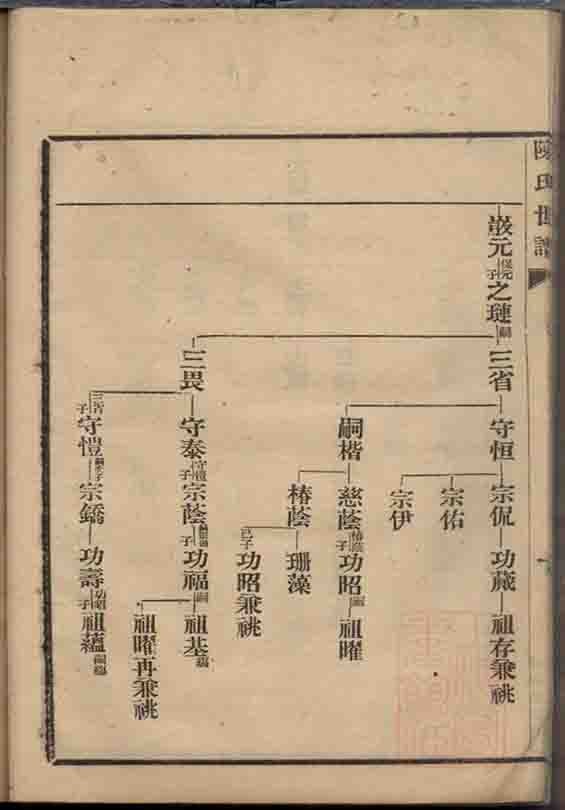 陳氏世譜
嶔元 保元子 之璉 嗣
三省
守恒
宗侃
功藏
祖存兼祧
宗佑
宗伊
嗣楷
慈蔭 椿蔭子 功昭 嗣 祖曜
椿蔭
珊藻
己子 功昭兼祧
三畏
守泰 守愷子 宗蔭 子 功福 嗣 祖基 殤
祖曜再兼祧
三省子 守愷
宗鐈
功壽 功昭子 祖蘊 嗣殤